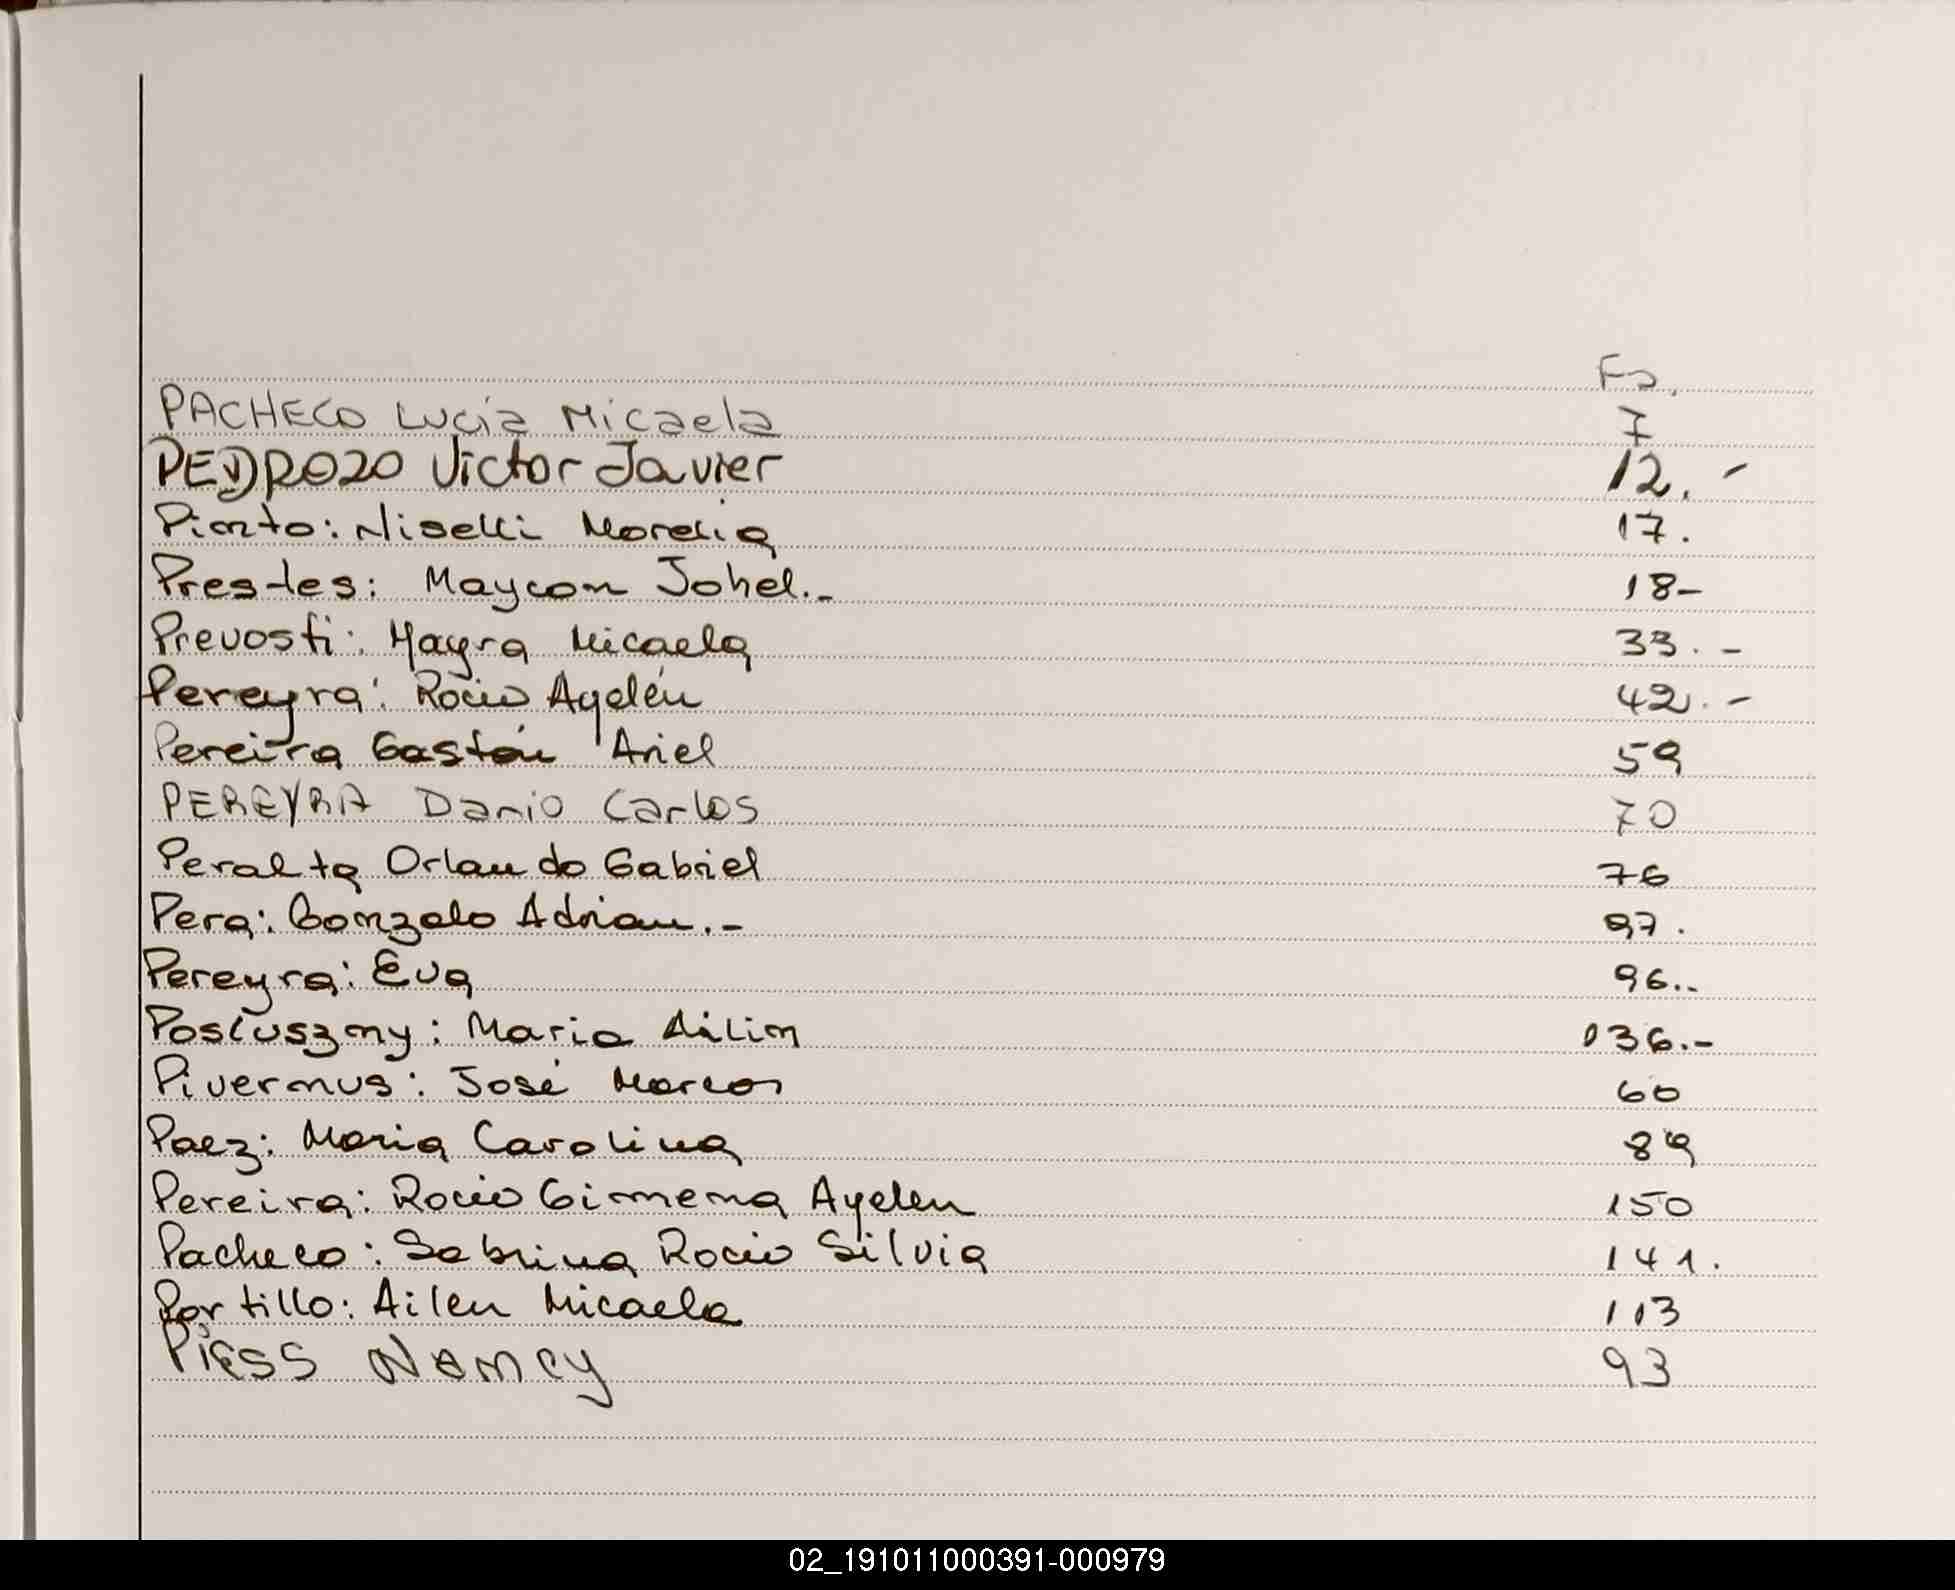 Fs.
PACHECO Lucía Micaela 7
PEDROZO Victor Javier 12. -
Pinto: Niselli Morelia 17.
Prestes: Maycon Johel.- 18-
Prevosti: Mayra Micaela 33. -
Pereyra: Rocío Ayelén 42. -
Pereira Gastón Ariel 59
PEREYRA Dario Carlos 70
Peralta Orlando Gabriel 76
Pera: Gonzalo Adrian.- 97.
Pereyra: Eva 96..
Postuszny: Maria Ailin 136.-
Pivernus: José Marcos 60
Paez: Maria Carolina 89
Pereira: Rocio Gimena Ayelen 150
Pacheco: Sabrina Rocio Silvia 141.
Portillo: Ailen Micaela 113
Piess Nancy 93
02_191011000391-000979